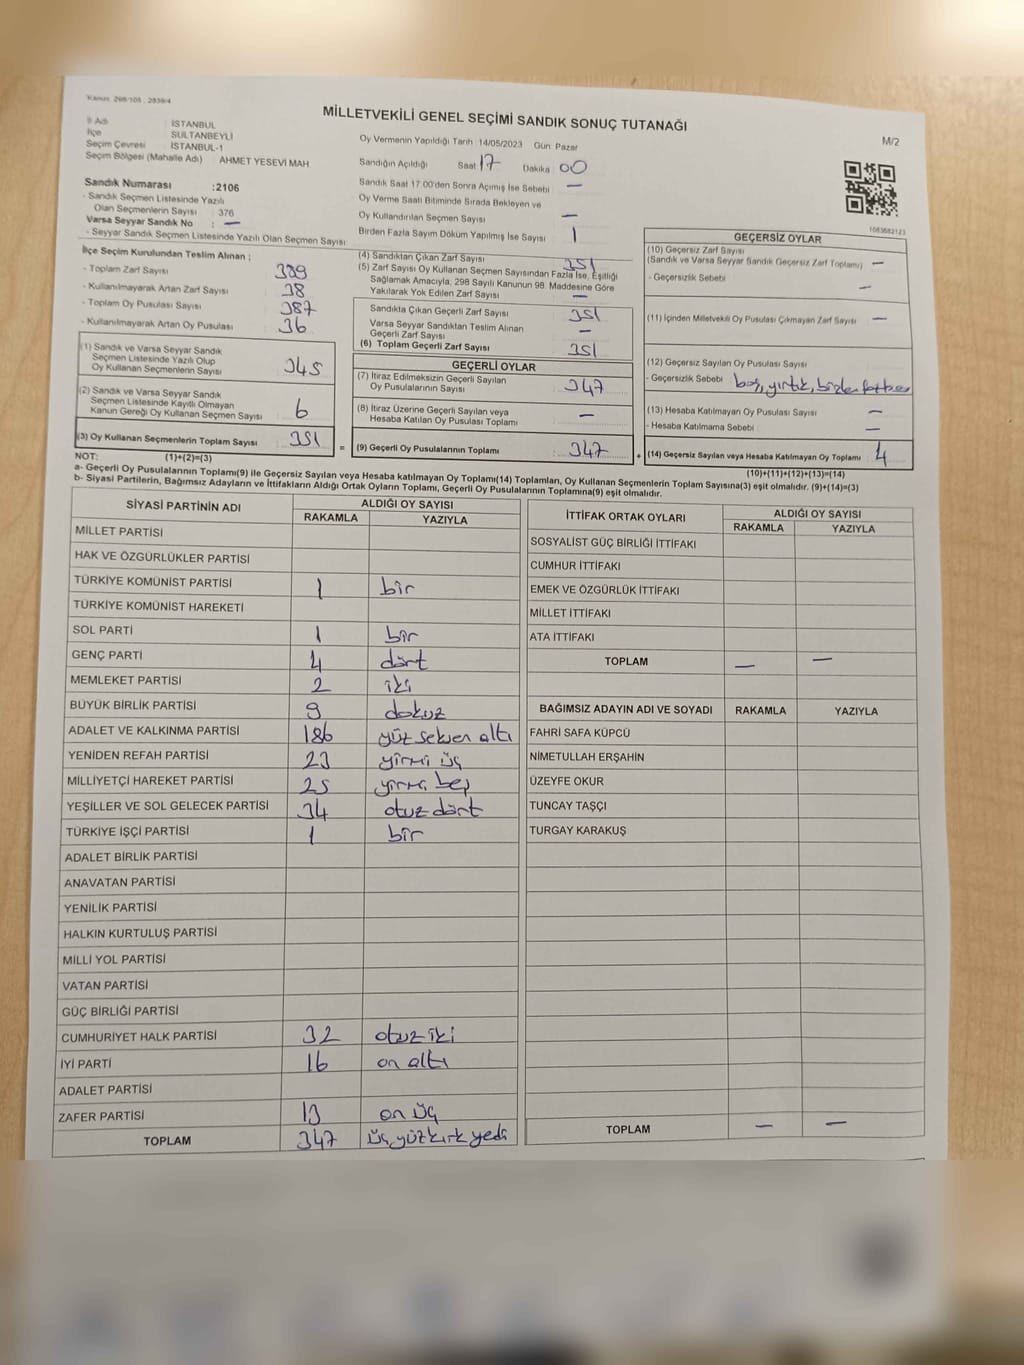 Kanun: 298/105 , 2839/4
MİLLETVEKİLİ GENEL SEÇİMİ SANDIK SONUÇ TUTANAĞI
M/2
İl Adı : İSTANBUL
İlçe : SULTANBEYLİ
Seçim Çevresi : İSTANBUL-1
Seçim Bölgesi (Mahalle Adı) : AHMET YESEVİ MAH
Sandık Numarası :2106
- Sandık Seçmen Listesinde Yazılı
Olan Seçmenlerin Sayısı : 376
Varsa Seyyar Sandık No : —
- Seyyar Sandık Seçmen Listesinde Yazılı Olan Seçmen Sayısı:
Oy Vermenin Yapıldığı Tarih :14/05/2023 Gün: Pazar
Sandığın Açıldığı Saat: 17 Dakika: 00
Sandık Saat 17.00'den Sonra Açımış İse Sebebi : —
Oy Verme Saati Bitiminde Sırada Bekleyen ve
Oy Kullandırılan Seçmen Sayısı : —
Birden Fazla Sayım Döküm Yapılmış İse Sayısı : 1
1083682123
İlçe Seçim Kurulundan Teslim Alınan :
- Toplam Zarf Sayısı : 389
- Kullanılmayarak Artan Zarf Sayısı : 38
- Toplam Oy Pusulası Sayısı : 387
- Kullanılmayarak Artan Oy Pusulası : 36
(1) Sandık ve Varsa Seyyar Sandık
Seçmen Listesinde Yazılı Olup
Oy Kullanan Seçmenlerin Sayısı : 345
(2) Sandık ve Varsa Seyyar Sandık
Seçmen Listesinde Kayıtlı Olmayan
Kanun Gereği Oy Kullanan Seçmen Sayısı : 6
(3) Oy Kullanan Seçmenlerin Toplam Sayısı : 351
(1)+(2)=(3)
(4) Sandıktan Çıkan Zarf Sayısı : 351
(5) Zarf Sayısı Oy Kullanan Seçmen Sayısından Fazla İse, Eşitliği
Sağlamak Amacıyla, 298 Sayılı Kanunun 98. Maddesine Göre
Yakılarak Yok Edilen Zarf Sayısı : —
Sandıkta Çıkan Geçerli Zarf Sayısı : 351
Varsa Seyyar Sandıktan Teslim Alınan
Geçerli Zarf Sayısı : —
(6) Toplam Geçerli Zarf Sayısı : 351
GEÇERLİ OYLAR
(7) İtiraz Edilmeksizin Geçerli Sayılan
Oy Pusulalarının Sayısı : 347
(8) İtiraz Üzerine Geçerli Sayılan veya
Hesaba Katılan Oy Pusulası Toplamı : —
= (9) Geçerli Oy Pusulalarının Toplamı : 347 +
GEÇERSİZ OYLAR
(10) Geçersiz Zarf Sayısı
(Sandık ve Varsa Seyyar Sandık Geçersiz Zarf Toplamı) : —
- Geçersizlik Sebebi : —
(11) İçinden Milletvekili Oy Pusulası Çıkmayan Zarf Sayısı : —
(12) Geçersiz Sayılan Oy Pusulası Sayısı
- Geçersizlik Sebebi : boş, yırtık,
(13) Hesaba Katılmayan Oy Pusulası Sayısı : —
- Hesaba Katılmama Sebebi : —
(14) Geçersiz Sayılan veya Hesaba Katılmayan Oy Toplamı : 4
(10)+(11)+(12)+(13)=(14)
NOT:
a- Geçerli Oy Pusulalarının Toplamı(9) ile Geçersiz Sayılan veya Hesaba katılmayan Oy Toplamı(14) Toplamları, Oy Kullanan Seçmenlerin Toplam Sayısına(3) eşit olmalıdır. (9)+(14)=(3)
b- Siyasi Partilerin, Bağımsız Adayların ve İttifakların Aldığı Ortak Oyların Toplamı, Geçerli Oy Pusulalarının Toplamına(9) eşit olmalıdır.
SİYASİ PARTİNİN ADI ALDIĞI OY SAYISI
RAKAMLA YAZIYLA
MİLLET PARTİSİ
HAK VE ÖZGÜRLÜKLER PARTİSİ
TÜRKİYE KOMÜNİST PARTİSİ 1 bir
TÜRKİYE KOMÜNİST HAREKETİ
SOL PARTİ 1 bir
GENÇ PARTİ 4 dört
MEMLEKET PARTİSİ 2 iki
BÜYÜK BİRLİK PARTİSİ 9 dokuz
ADALET VE KALKINMA PARTİSİ 186 yüz seksen altı
YENİDEN REFAH PARTİSİ 23 yirmi üç
MİLLİYETÇİ HAREKET PARTİSİ 25 yirmi beş
YEŞİLLER VE SOL GELECEK PARTİSİ 34 otuz dört
TÜRKİYE İŞÇİ PARTİSİ 1 bir
ADALET BİRLİK PARTİSİ
ANAVATAN PARTİSİ
YENİLİK PARTİSİ
HALKIN KURTULUŞ PARTİSİ
MİLLİ YOL PARTİSİ
VATAN PARTİSİ
GÜÇ BİRLİĞİ PARTİSİ
CUMHURİYET HALK PARTİSİ 32 otuz iki
İYİ PARTİ 16 on altı
ADALET PARTİSİ
ZAFER PARTİSİ 13 on üç
TOPLAM 347 üç yüz kırk yedi
İTTİFAK ORTAK OYLARI ALDIĞI OY SAYISI
RAKAMLA YAZIYLA
SOSYALİST GÜÇ BİRLİĞİ İTTİFAKI
CUMHUR İTTİFAKI
EMEK VE ÖZGÜRLÜK İTTİFAKI
MİLLET İTTİFAKI
ATA İTTİFAKI
TOPLAM — —
BAĞIMSIZ ADAYIN ADI VE SOYADI RAKAMLA YAZIYLA
FAHRİ SAFA KÜPCÜ
NİMETULLAH ERŞAHİN
ÜZEYFE OKUR
TUNCAY TAŞÇI
TURGAY KARAKUŞ
TOPLAM — —